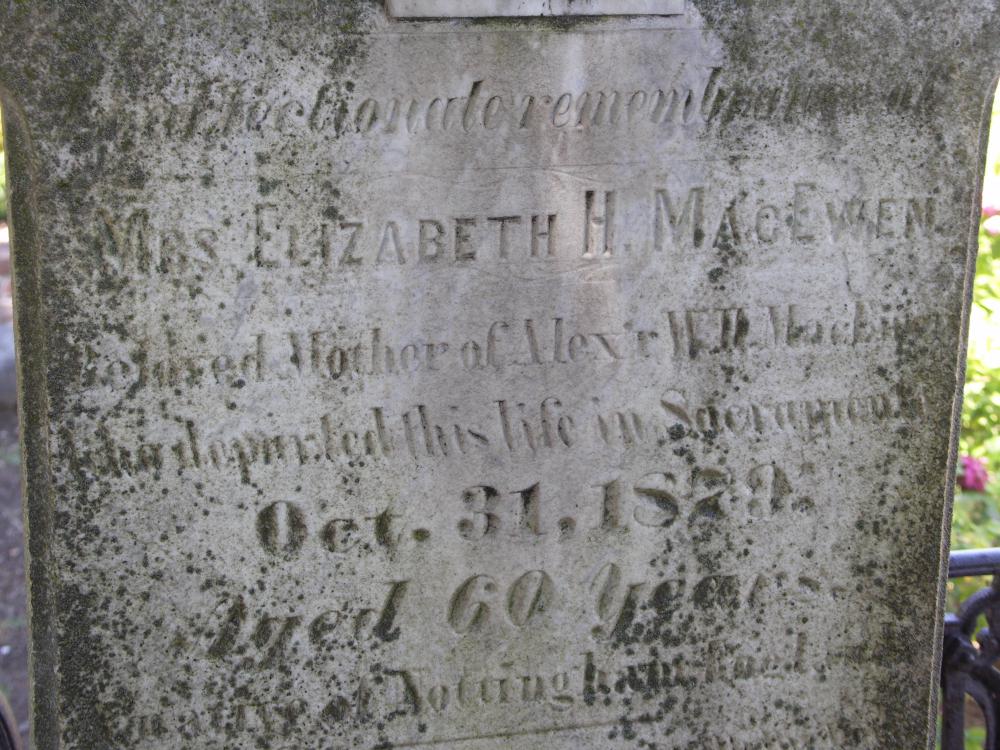 affectionate remembrance of
Mrs Elizabeth H. MacEwen
beloved Mother of Alex'r W. H. MacEwen
who departed this life in Sacramento
Oct. 31, 1879.
Aged 60 Years.
a native of Nottingham